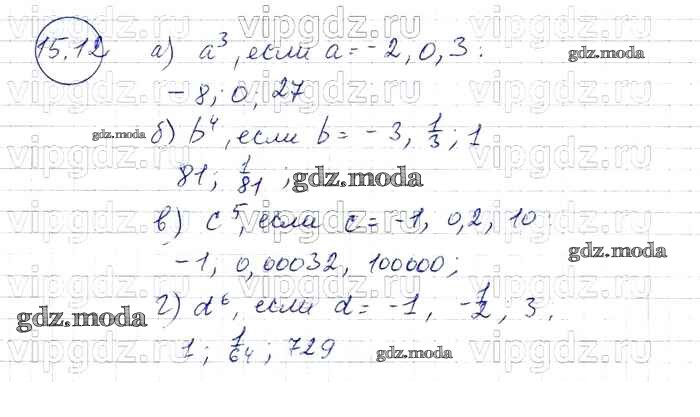 15.12 а) a³, если a = -2, 0, 3:
-8; 0; 27
б) b⁴, если b = -3, 1/3; 1
81; 1/81;
в) c⁵, если c = -1, 0,2, 10:
-1, 0,00032, 100000;
г) d⁶, если d = -1, -1/2; 3;
1; 1/64; 729
gdz.moda
gdz.moda
gdz.moda
gdz.moda
gdz.moda
gdz.moda
vipgdz.ru vipgdz.ru vipgdz.ru